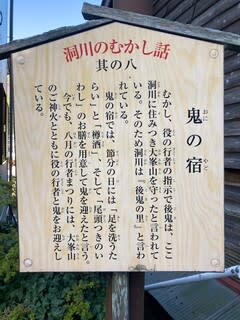 洞川のむかし話
其の八
鬼の宿
おに
やど
むかし、役の行者の指示で後鬼は、ここ
洞川に住みつき大峯山を守ったと言われて
いる。そのため洞川は「後鬼の里」と言わ
れている。
鬼の宿では、節分の日には「足を洗うた
らい」と「樽酒」、そして「尾頭つきのい
わし」のお膳を用意して鬼を迎えたと言う。
今でも、八月の行者まつりには、大峯山
のご神火とともに役の行者と鬼をお迎えし
ている。